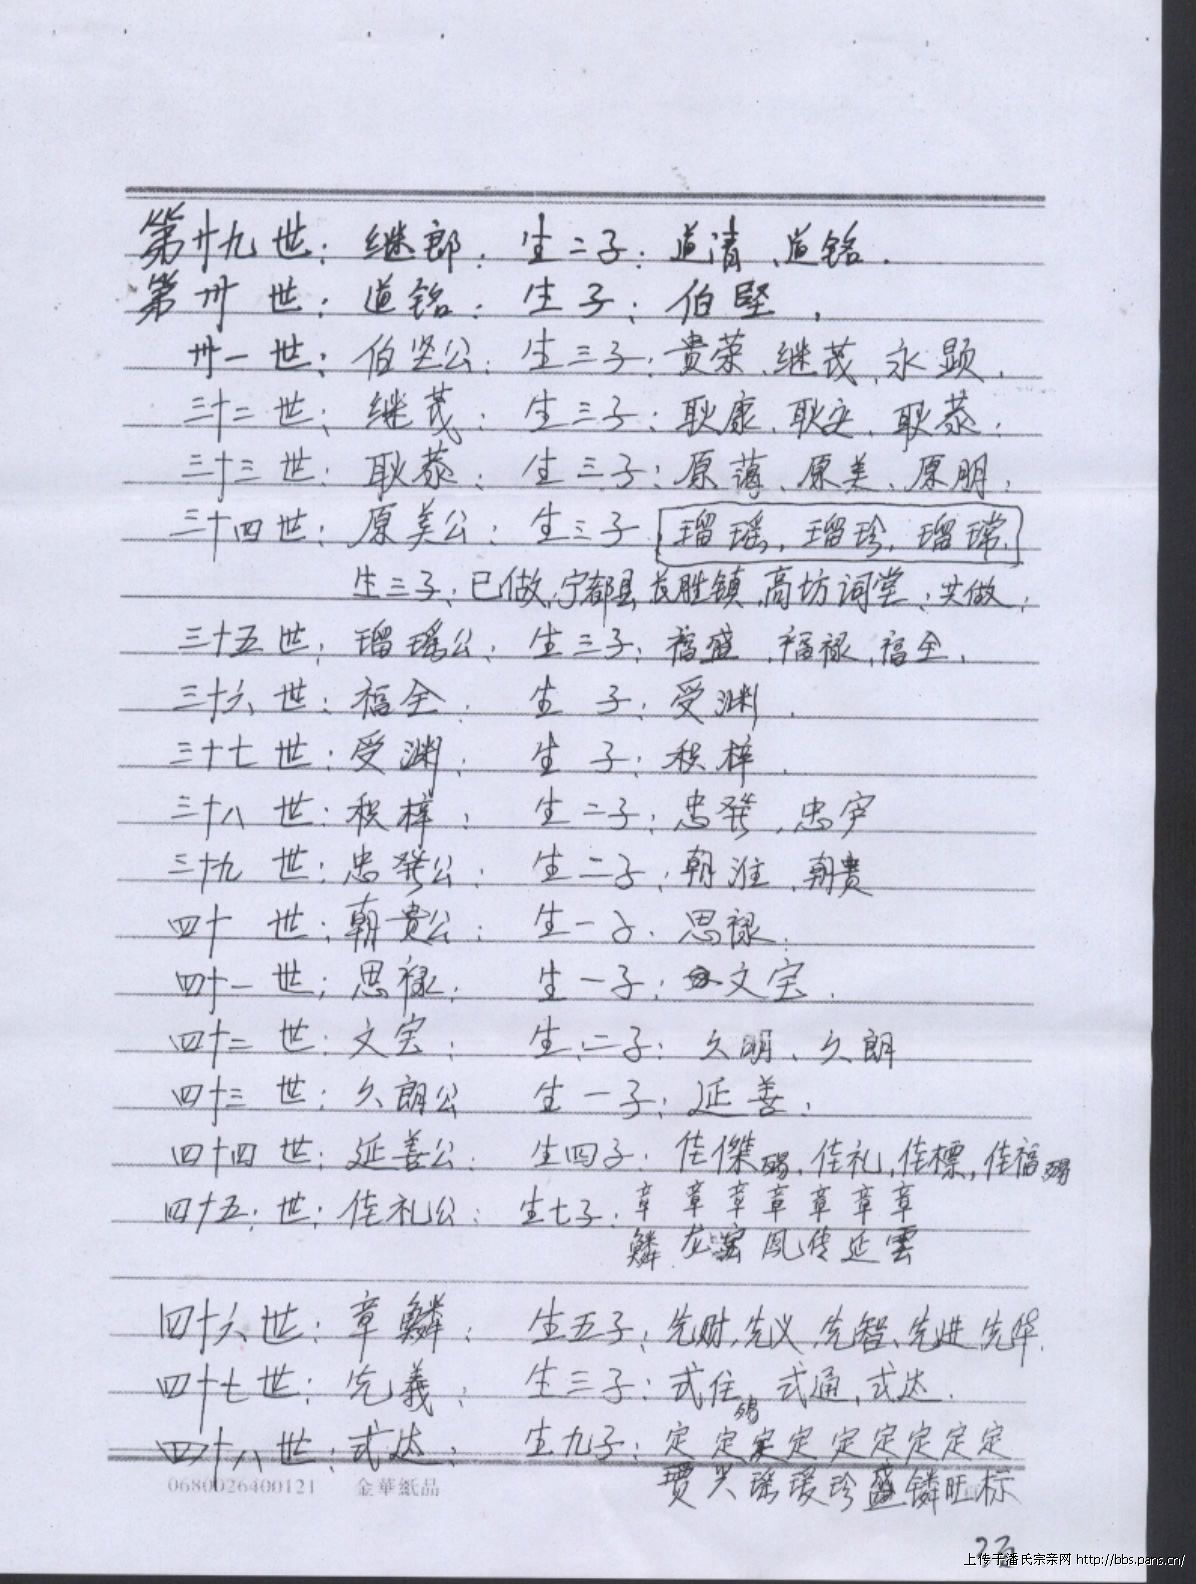 第廿九世：继郎：生二子：道清、道铭.
第卅世：道铭：生子：伯坚，
卅一世：伯坚公：生三子：贵荣、继茂、永顕.
三十二世：继茂：生三子：耿康、耿安、耿恭：
三十三世：耿恭：生三子：原蔼、原美、原朋，
三十四世：原美公：生三子瑠瑶，瑠珍，瑠璨
生三子、已做、宁都县长胜镇、高坊词堂、共做，
三十五世：瑠瑶公：生三子：福盛、福禄，福全.
三十六世：福全.生子：受渊.
三十七世：受渊：生子：积梓.
三十八世：积梓：生二子：忠發，忠
三十九世：忠發公：生二子：朝淮、朝貴
四十世：朝貴公：生一子.思禄.
四十一世：思禄：生一子：文宝.
四十二世：文宝：生二子：久明、久朗
四十三世：久朗公生一子：延善：
四十四世：延善公：生四子：佳傑，佳礼，佳標，佳福
四十五：世：佳礼公：生七子：章章章章章章章
鱗龙宝凤传延雲
四十六世：章鱗：生五子：先财，先义，先智、先进，先华.
四十七世：先義：生三子：式住，式通，式达.
四十八世：式达：生九子：定定定定定定定定定
贾兴瑶瑗珍盛鳞旺标
0680026400121 金華紙品
上传于潘氏宗亲网 http://bbs.pans.cn/